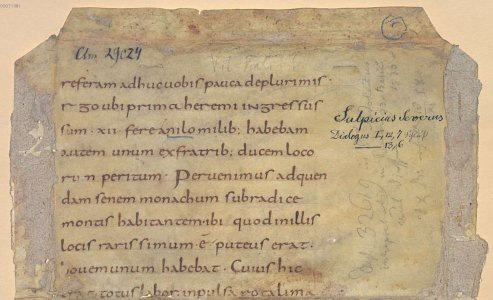 Clm 29024
referam adhuc vobis pauca deplurimis ·
rgo ubi prima heremi ingressus
sum · xii · fere anilo milib; habebam
autem unum exfratrib; ducem loco
ru n peritum · Pervenimus adquen
dam senem monachum subradice
montis habitantem · ibi quod in illis
locis rarissimum ē puteus erat ·
bovem unum habebat · Cuius hic
erat totus labor inpulsa rotali ma
Sulpicius Severus
Dialogus I, 12, 7
13, 6